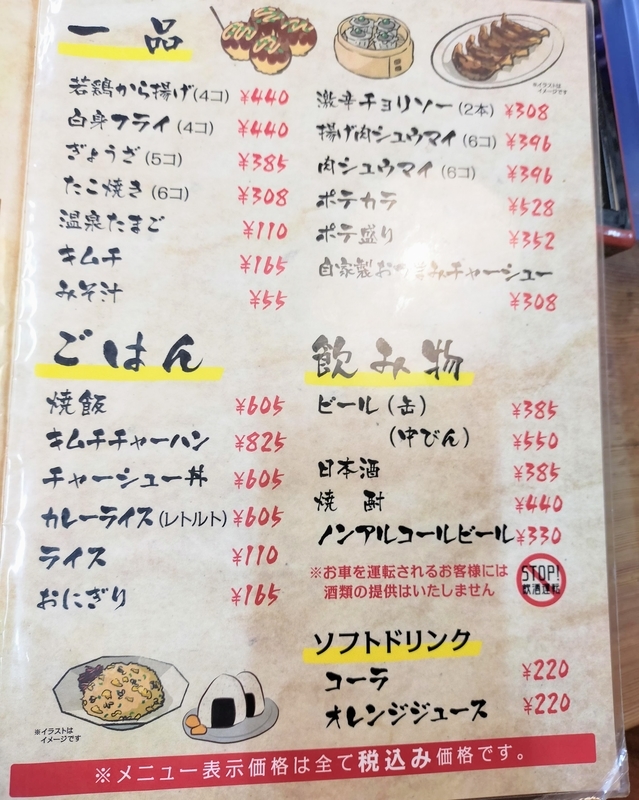 一品
若鶏から揚げ(4コ) ¥440
白身フライ(4コ) ¥440
ぎょうざ(5コ) ¥385
たこ焼き(6コ) ¥308
温泉たまご ¥110
キムチ ¥165
みそ汁 ¥55
※イラストは
イメージです
激辛チョリソー(2本) ¥308
揚げ肉シュウマイ(6コ) ¥396
肉シュウマイ(6コ) ¥396
ポテカラ ¥528
ポテ盛り ¥352
自家製おつまみチャーシュー
¥308
ごはん
焼飯 ¥605
キムチチャーハン ¥825
チャーシュー丼 ¥605
カレーライス(レトルト) ¥605
ライス ¥110
おにぎり ¥165
※イラストは
イメージです
飲み物
ビール(缶) ¥385
(中びん) ¥550
日本酒 ¥385
焼酎 ¥440
ノンアルコールビール ¥330
※お車を運転されるお客様には
酒類の提供はいたしません
STOP!
飲酒運転
ソフトドリンク
コーラ ¥220
オレンジジュース ¥220
※メニュー表示価格は全て税込み価格です。